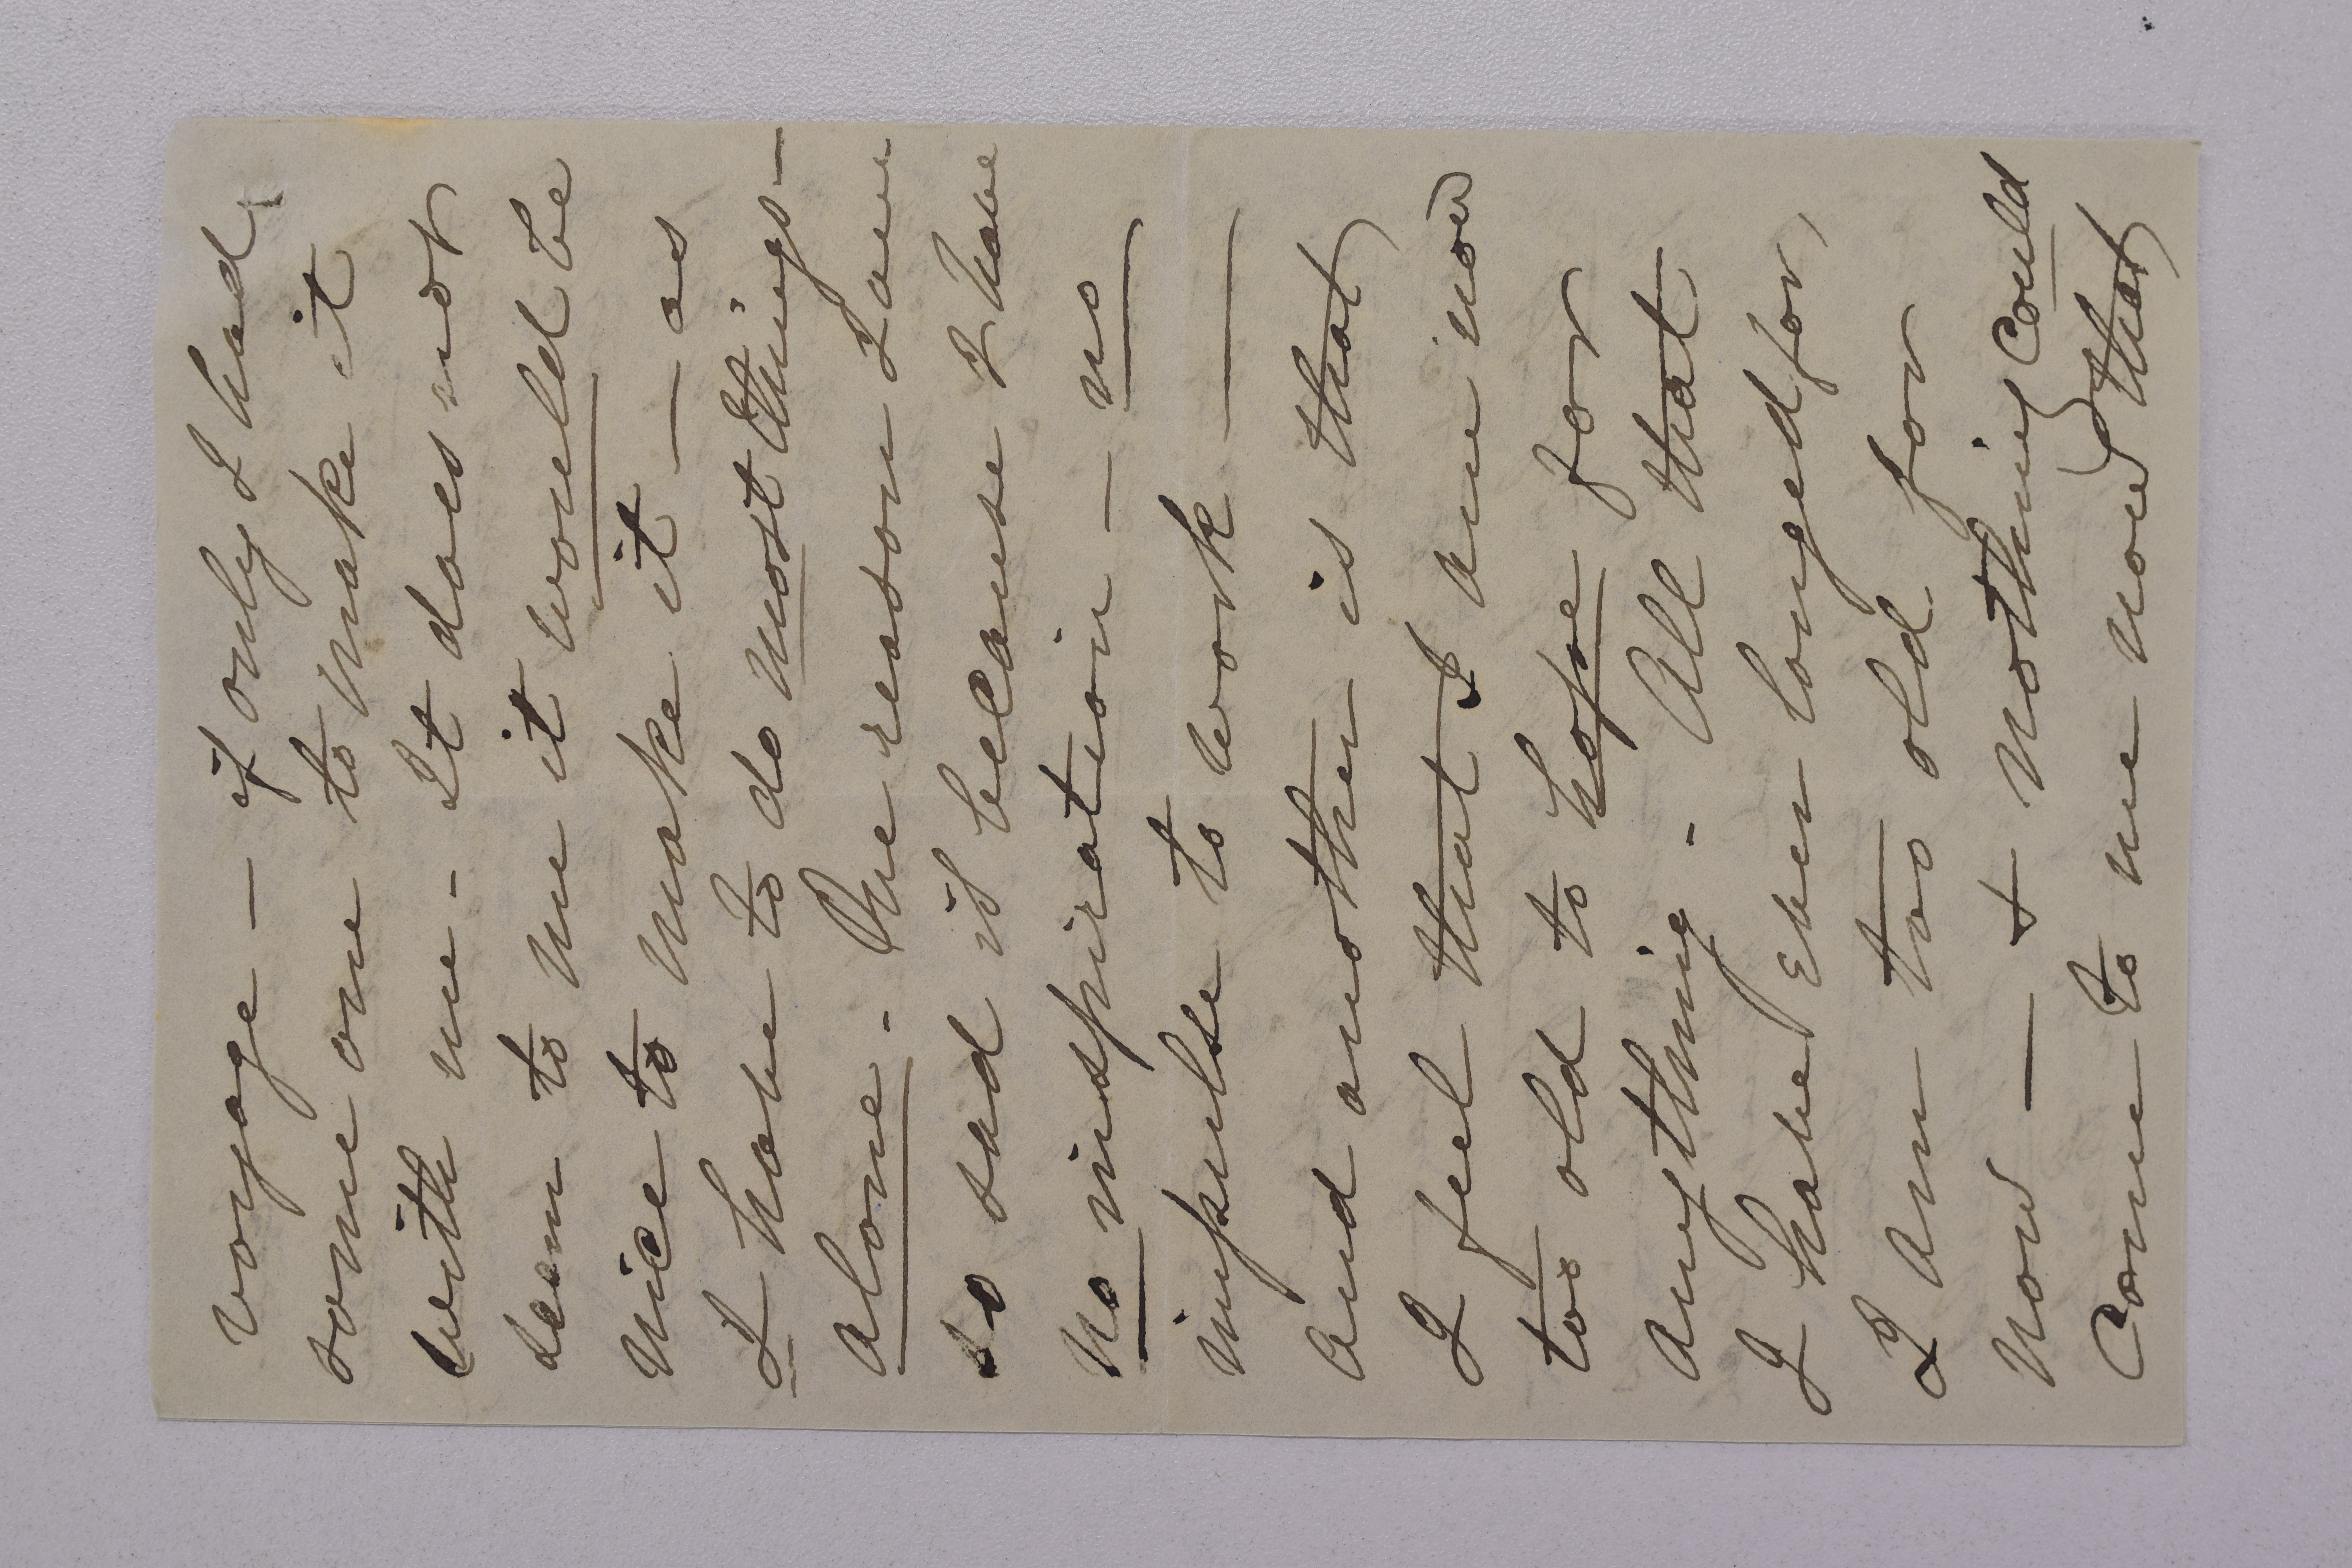 voyage — if only I had
some one to make it
with me - It does not
seem to me it would be
nice to make it — as
I have to do most things —
alone - One reason I am
so sad is because I have
no inspiration — no
impulse to work —
And another is that
I feel that I am now
too old to hope for
anything - All that
I have ever longed for,
I am too old for
now — + nothing could
come to me now that